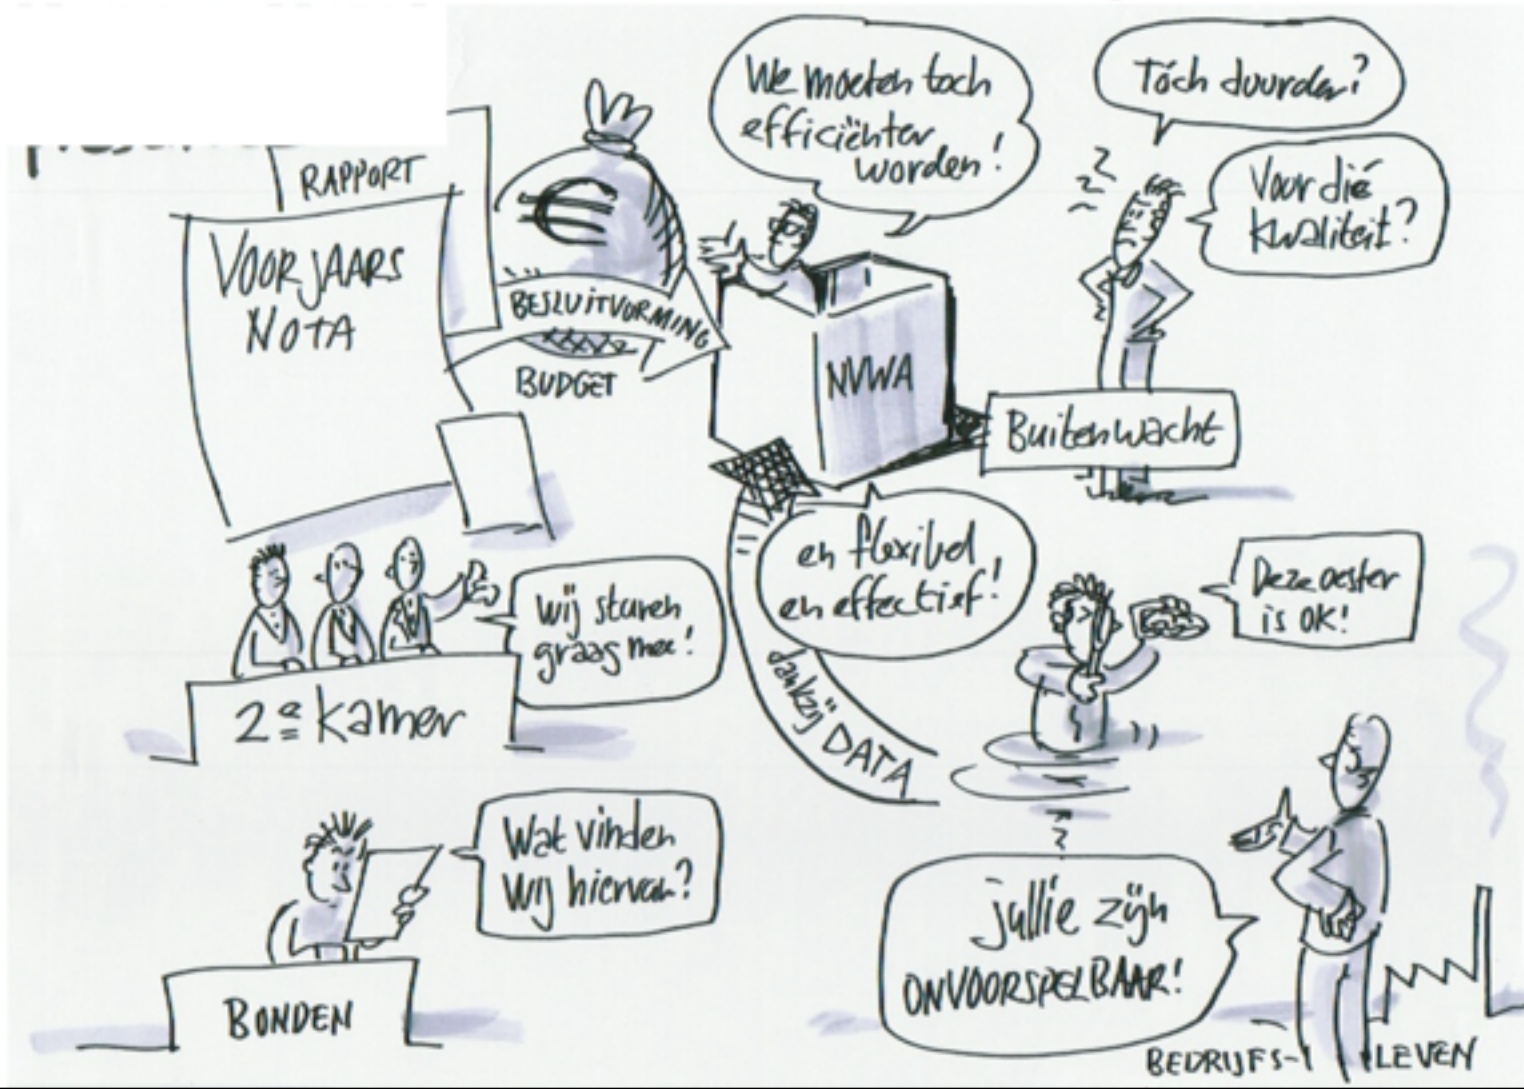 RAPPORT
VOORJAARS
NOTA
€
BESLUITVORMING
BUDGET
We moeten toch
efficiënter
worden!
Tóch duurder?
Voor dié
kwaliteit?
NVWA
Buitenwacht
en flexibel
en effectief!
wij sturen
graag mee!
2e kamer
dankzij DATA
Deze oester
is OK!
Wat vinden
wij hiervan?
BONDEN
jullie zijn
ONVOORSPELBAAR!
BEDRIJFS-LEVEN